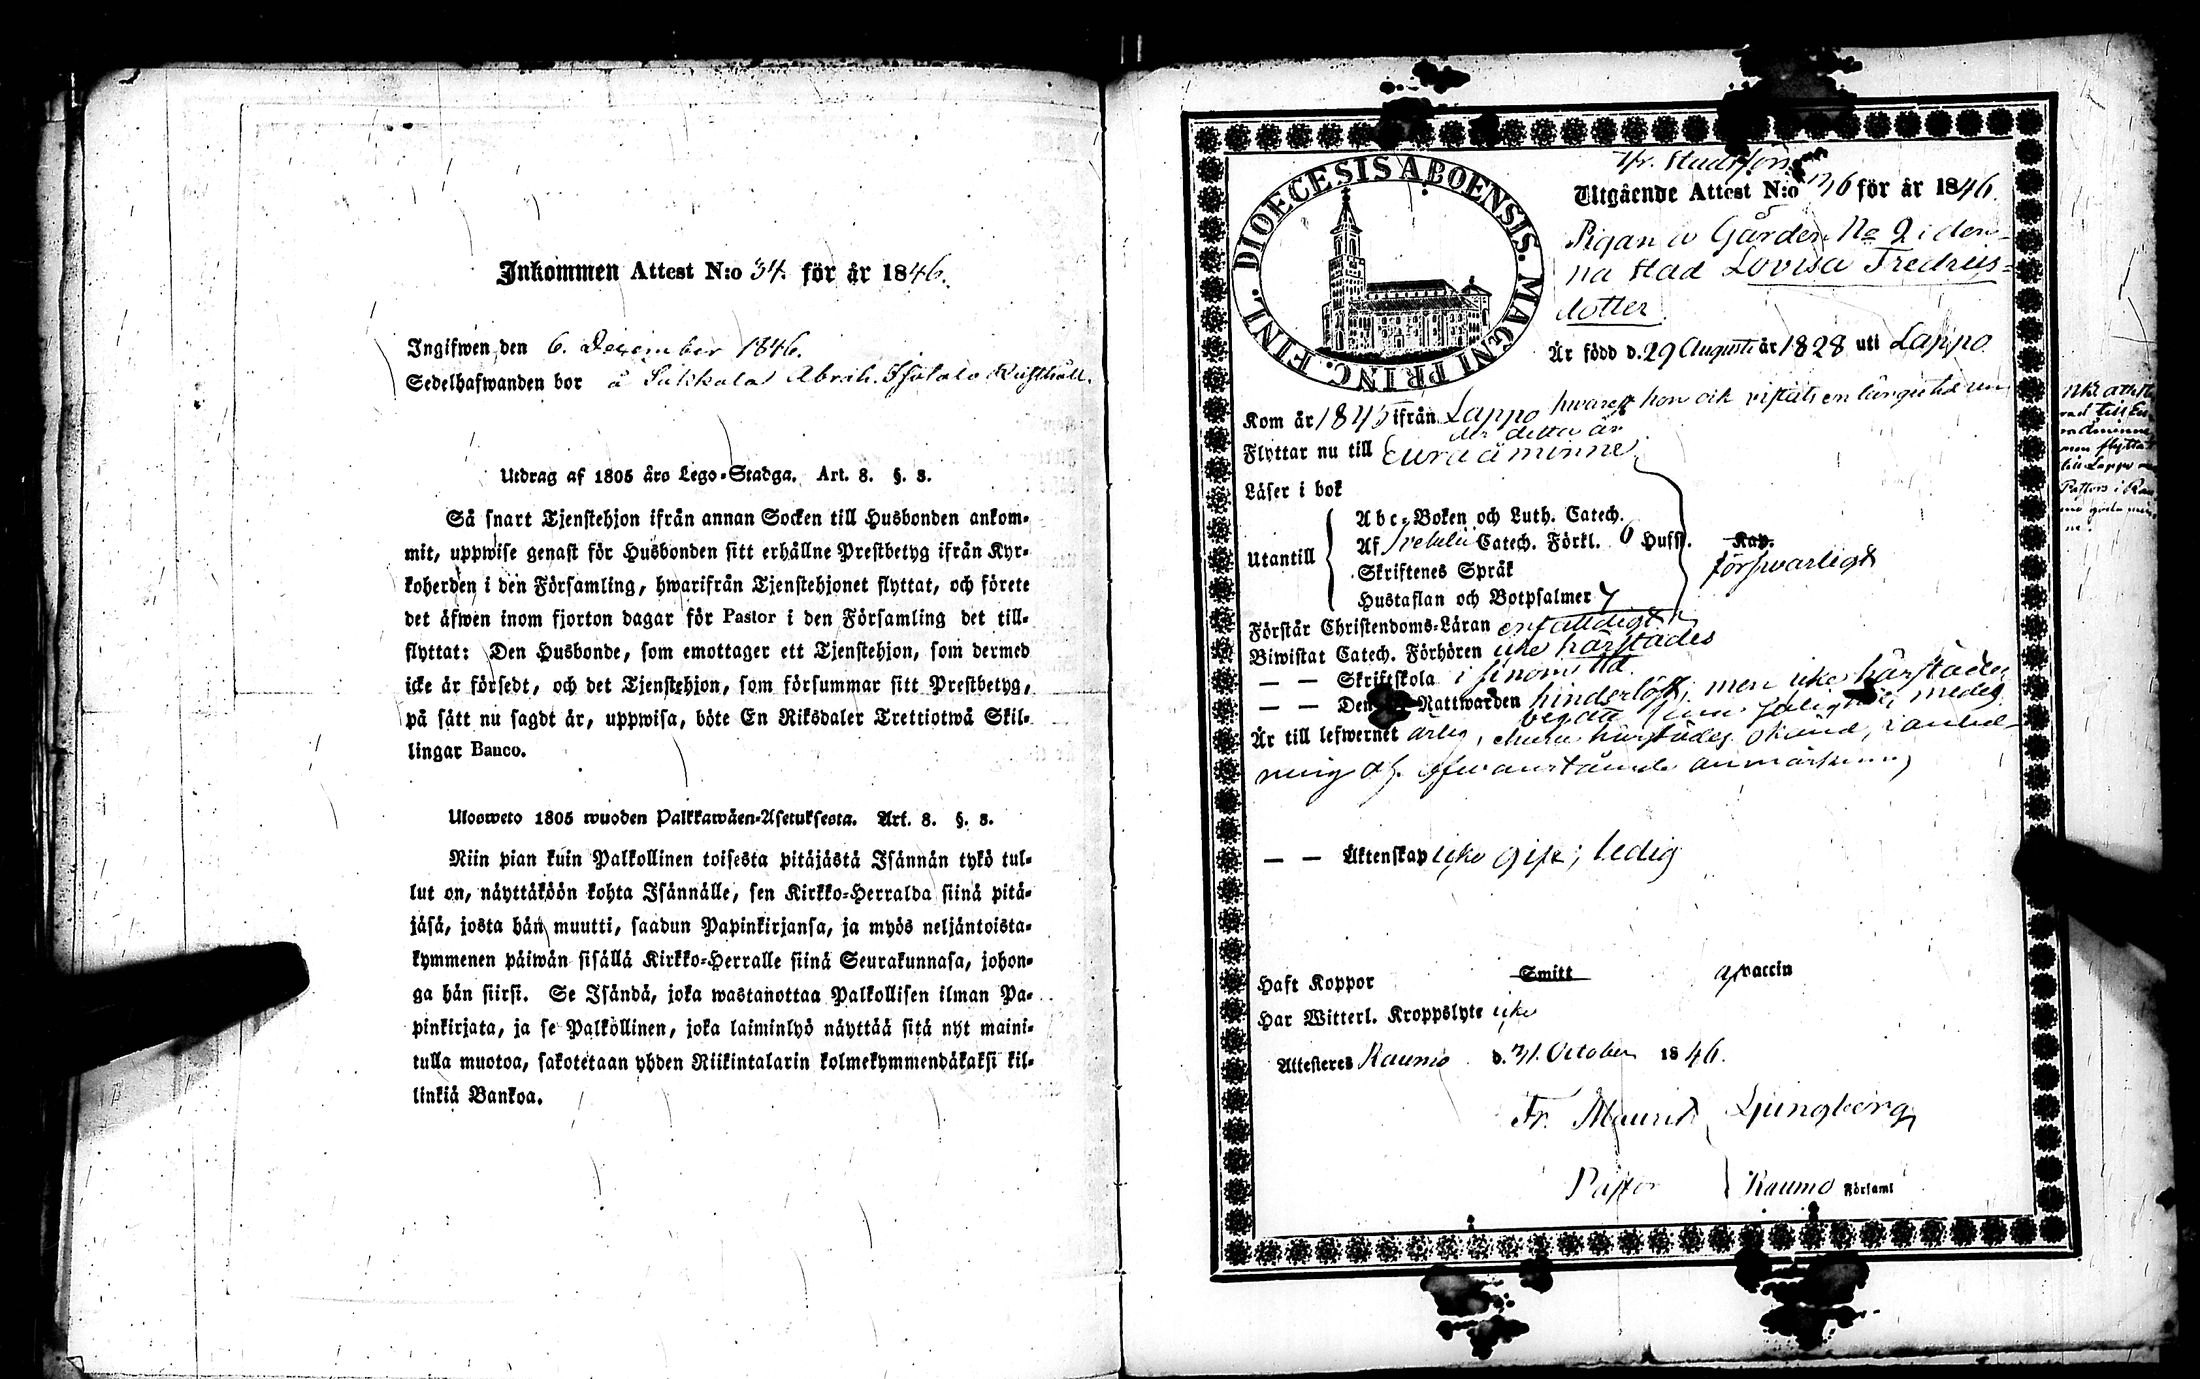 Inkommen Attest N:o 34. för år 1846.
Ingifwen den 6. December 1846.
Sedelhafwanden bor å Sukkala Abrah. Rusthåll.
Utdrag af 1805 års Lego-Stadga. Art. 8. §. 3.
Så snart Tjenstehjon ifrån annan Socken till Husbonden ankom-
mit, uppwise genast för Husbonden sitt erhållne Prestbetyg ifrån Kyr-
koherden i den Församling, hwarifrån Tjenstehjonet flyttat, och förete
det äfwen inom fjorton dagar för Pastor i den Församling det till-
flyttat: Den Husbonde, som emottager ett Tjenstehjon, som dermed
icke är försedt, och det Tjenstehjon, som försummar sitt Prestbetyg,
på sätt nu sagdt är, uppwisa, böte En Riksdaler Trettiotwå Skil-
lingar Banco.
Ulosweto 1805 wuoden Palkkawäen-Asetuksesta. Art. 8. §. 3.
Niin pian kuin Palkollinen toisesta pitäjästä Isännän tykö tul-
lut on, näyttäköön kohta Isännälle, sen Kirkko-Herralda siinä pitä-
jäsä, josta hän muutti, saadun Papinkirjansa, ja myös neljäntoista-
kymmenen päiwän sisällä Kirkko-Herralle siinä Seurakunnasa, johon-
ga hän siirsi. Se Isändä, joka wastanottaa Palkollisen ilman Pa-
pinkirjata, ja se Palkollinen, joka laiminlyö näyttää sitä nyt maini-
tulla muotoa, sakotetaan yhden Riikintalarin kolmekymmendäkaksi kil-
linkiä Bankoa.
DIOECESIS ABOENSIS. MAGNI PRINC. FINL.
Utgående Attest N:o för år 1846.
Pigan å Gården No 9 i den-
na stad Lovisa Fredriks-
dotter.
Är född d. 29 Augusti år 1828 uti Lappo
Kom år 1845 ifrån Lappo hwarest hon ock vistats en längre tid
under detta år
Flyttar nu till Euraåminne;
Läser i bok
Utantill
Abc-Boken och Luth. Catech.
Af Svebilii Catech. Förkl. 6 Hufst. Kap.
Skriftenes Språk
Hustaflan och Botpsalmer 7
försvarligt
Förstår Christendoms-Läran enfaldigt
Biwistat Catech. Förhören icke härstädes
— — Skriftskola i sinom tid
— — Den Nattwarden hinderlöst; men icke härstädes
Är till lefwernet ärlig, härstädes okänd, i anled-
ning af ofwanstående anmärkning
— — Äktenskap icke gift; ledig
Haft Koppor Smitt af vaccin
Har Witterl. Kroppslyte icke
Attesteras Raumo d. 31. October 1846.
Fr. Maurits Ljungberg
Pastor Raumo Församl
till Eu-
raåminne
men flyttat
till Lappo
Pastors i Rau-
mo